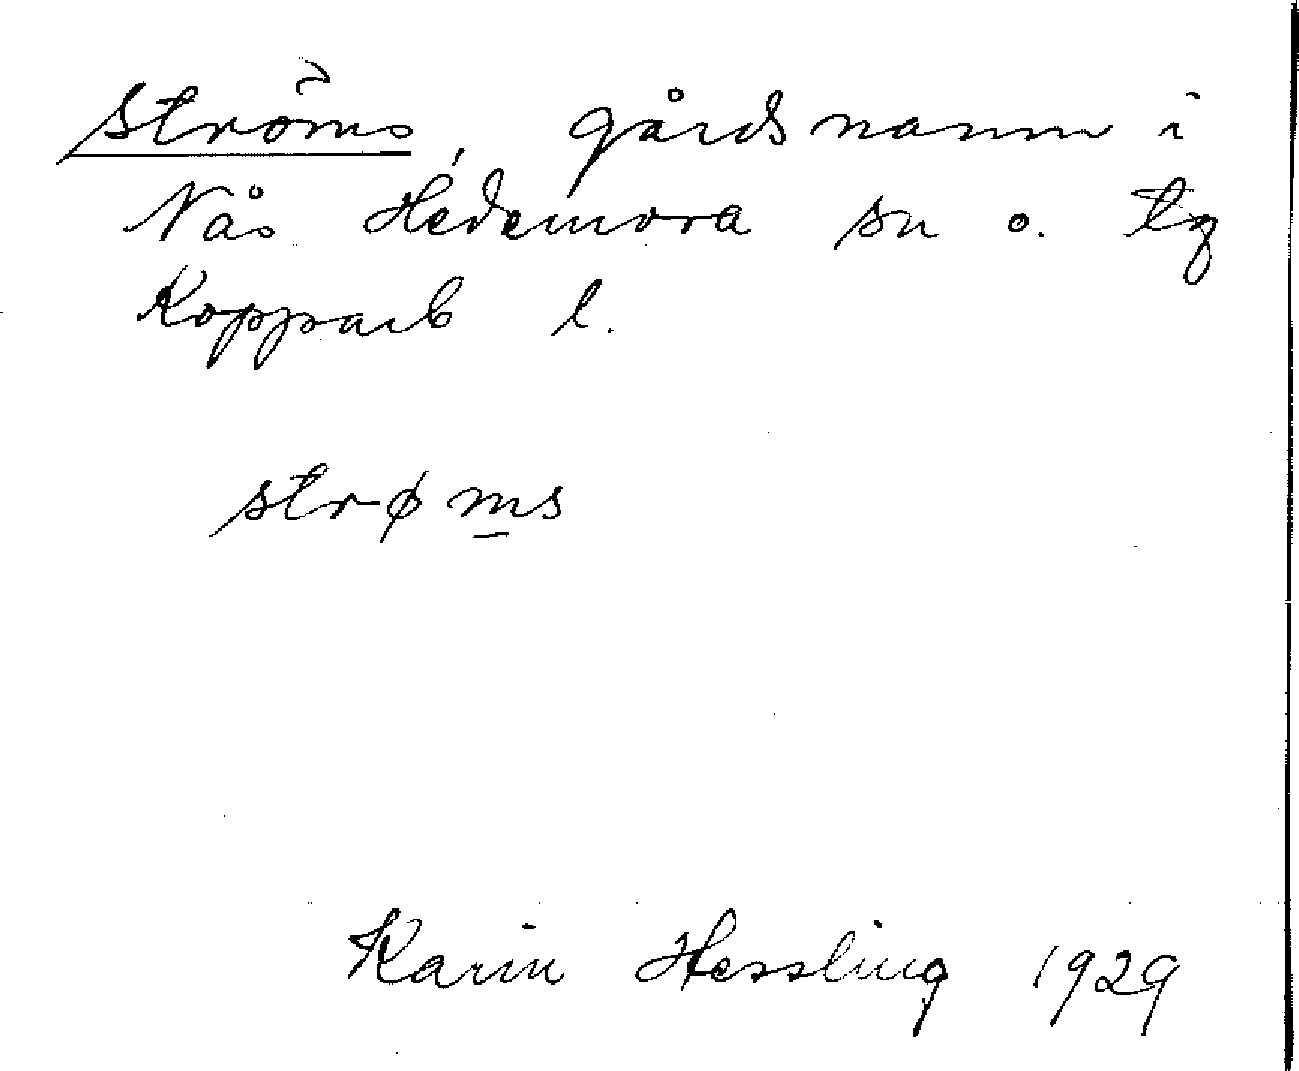 Ströms, gårdsnamn i
Nås Hedemora sn o. tg
Kopparb l.
strøm̲s
Karin Hessling 1929